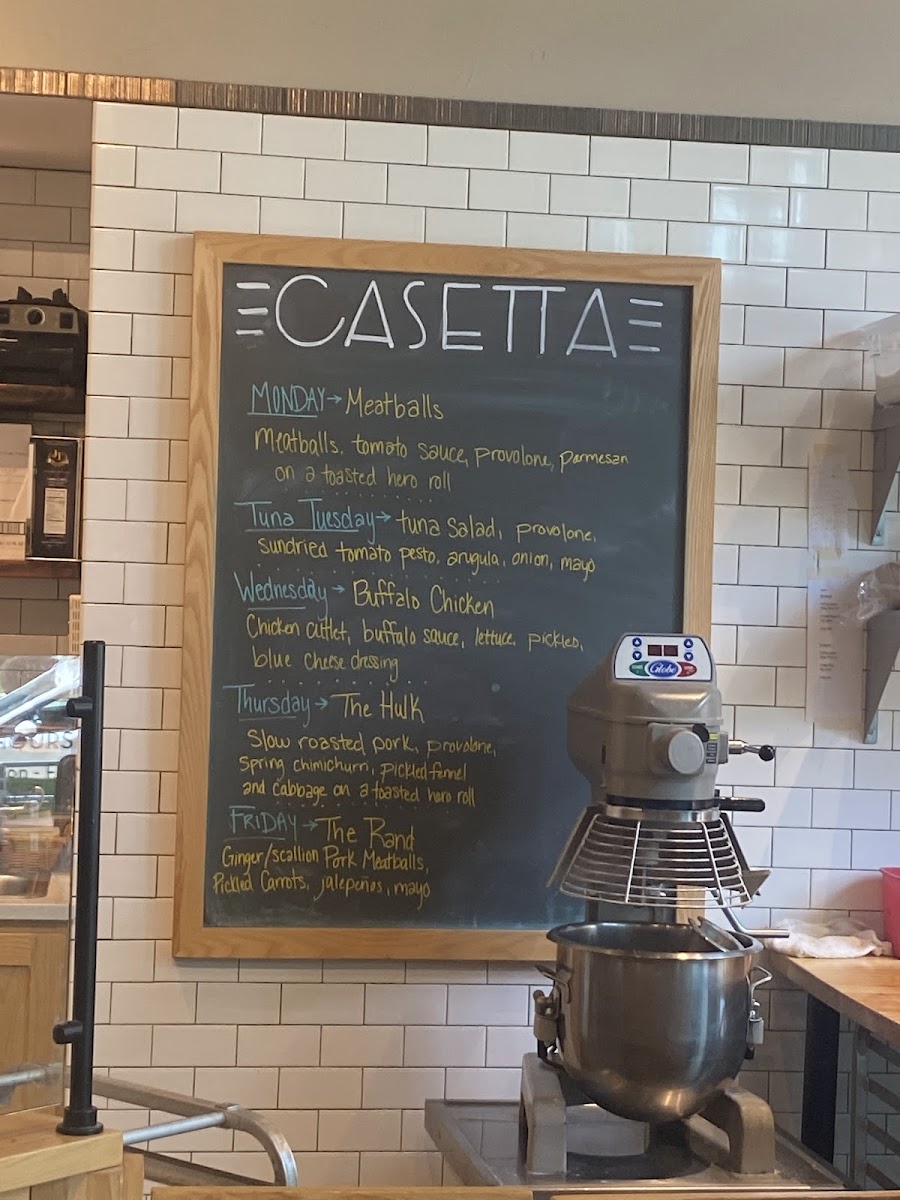 CASETTA
MONDAY → Meatballs
Meatballs, tomato sauce, provolone, parmesan
on a toasted hero roll
Tuna Tuesday → tuna salad, provolone,
sundried tomato pesto, arugula, onion, mayo
Wednesday → Buffalo Chicken
Chicken cutlet, buffalo sauce, lettuce, pickled,
blue cheese dressing
Thursday → The Hulk
Slow roasted pork, provolone,
spring chimichurri, pickled fennel
and cabbage on a toasted hero roll
FRIDAY → The Rand
Ginger/scallion Pork Meatballs,
Pickled Carrots, jalepeños, mayo
Globe